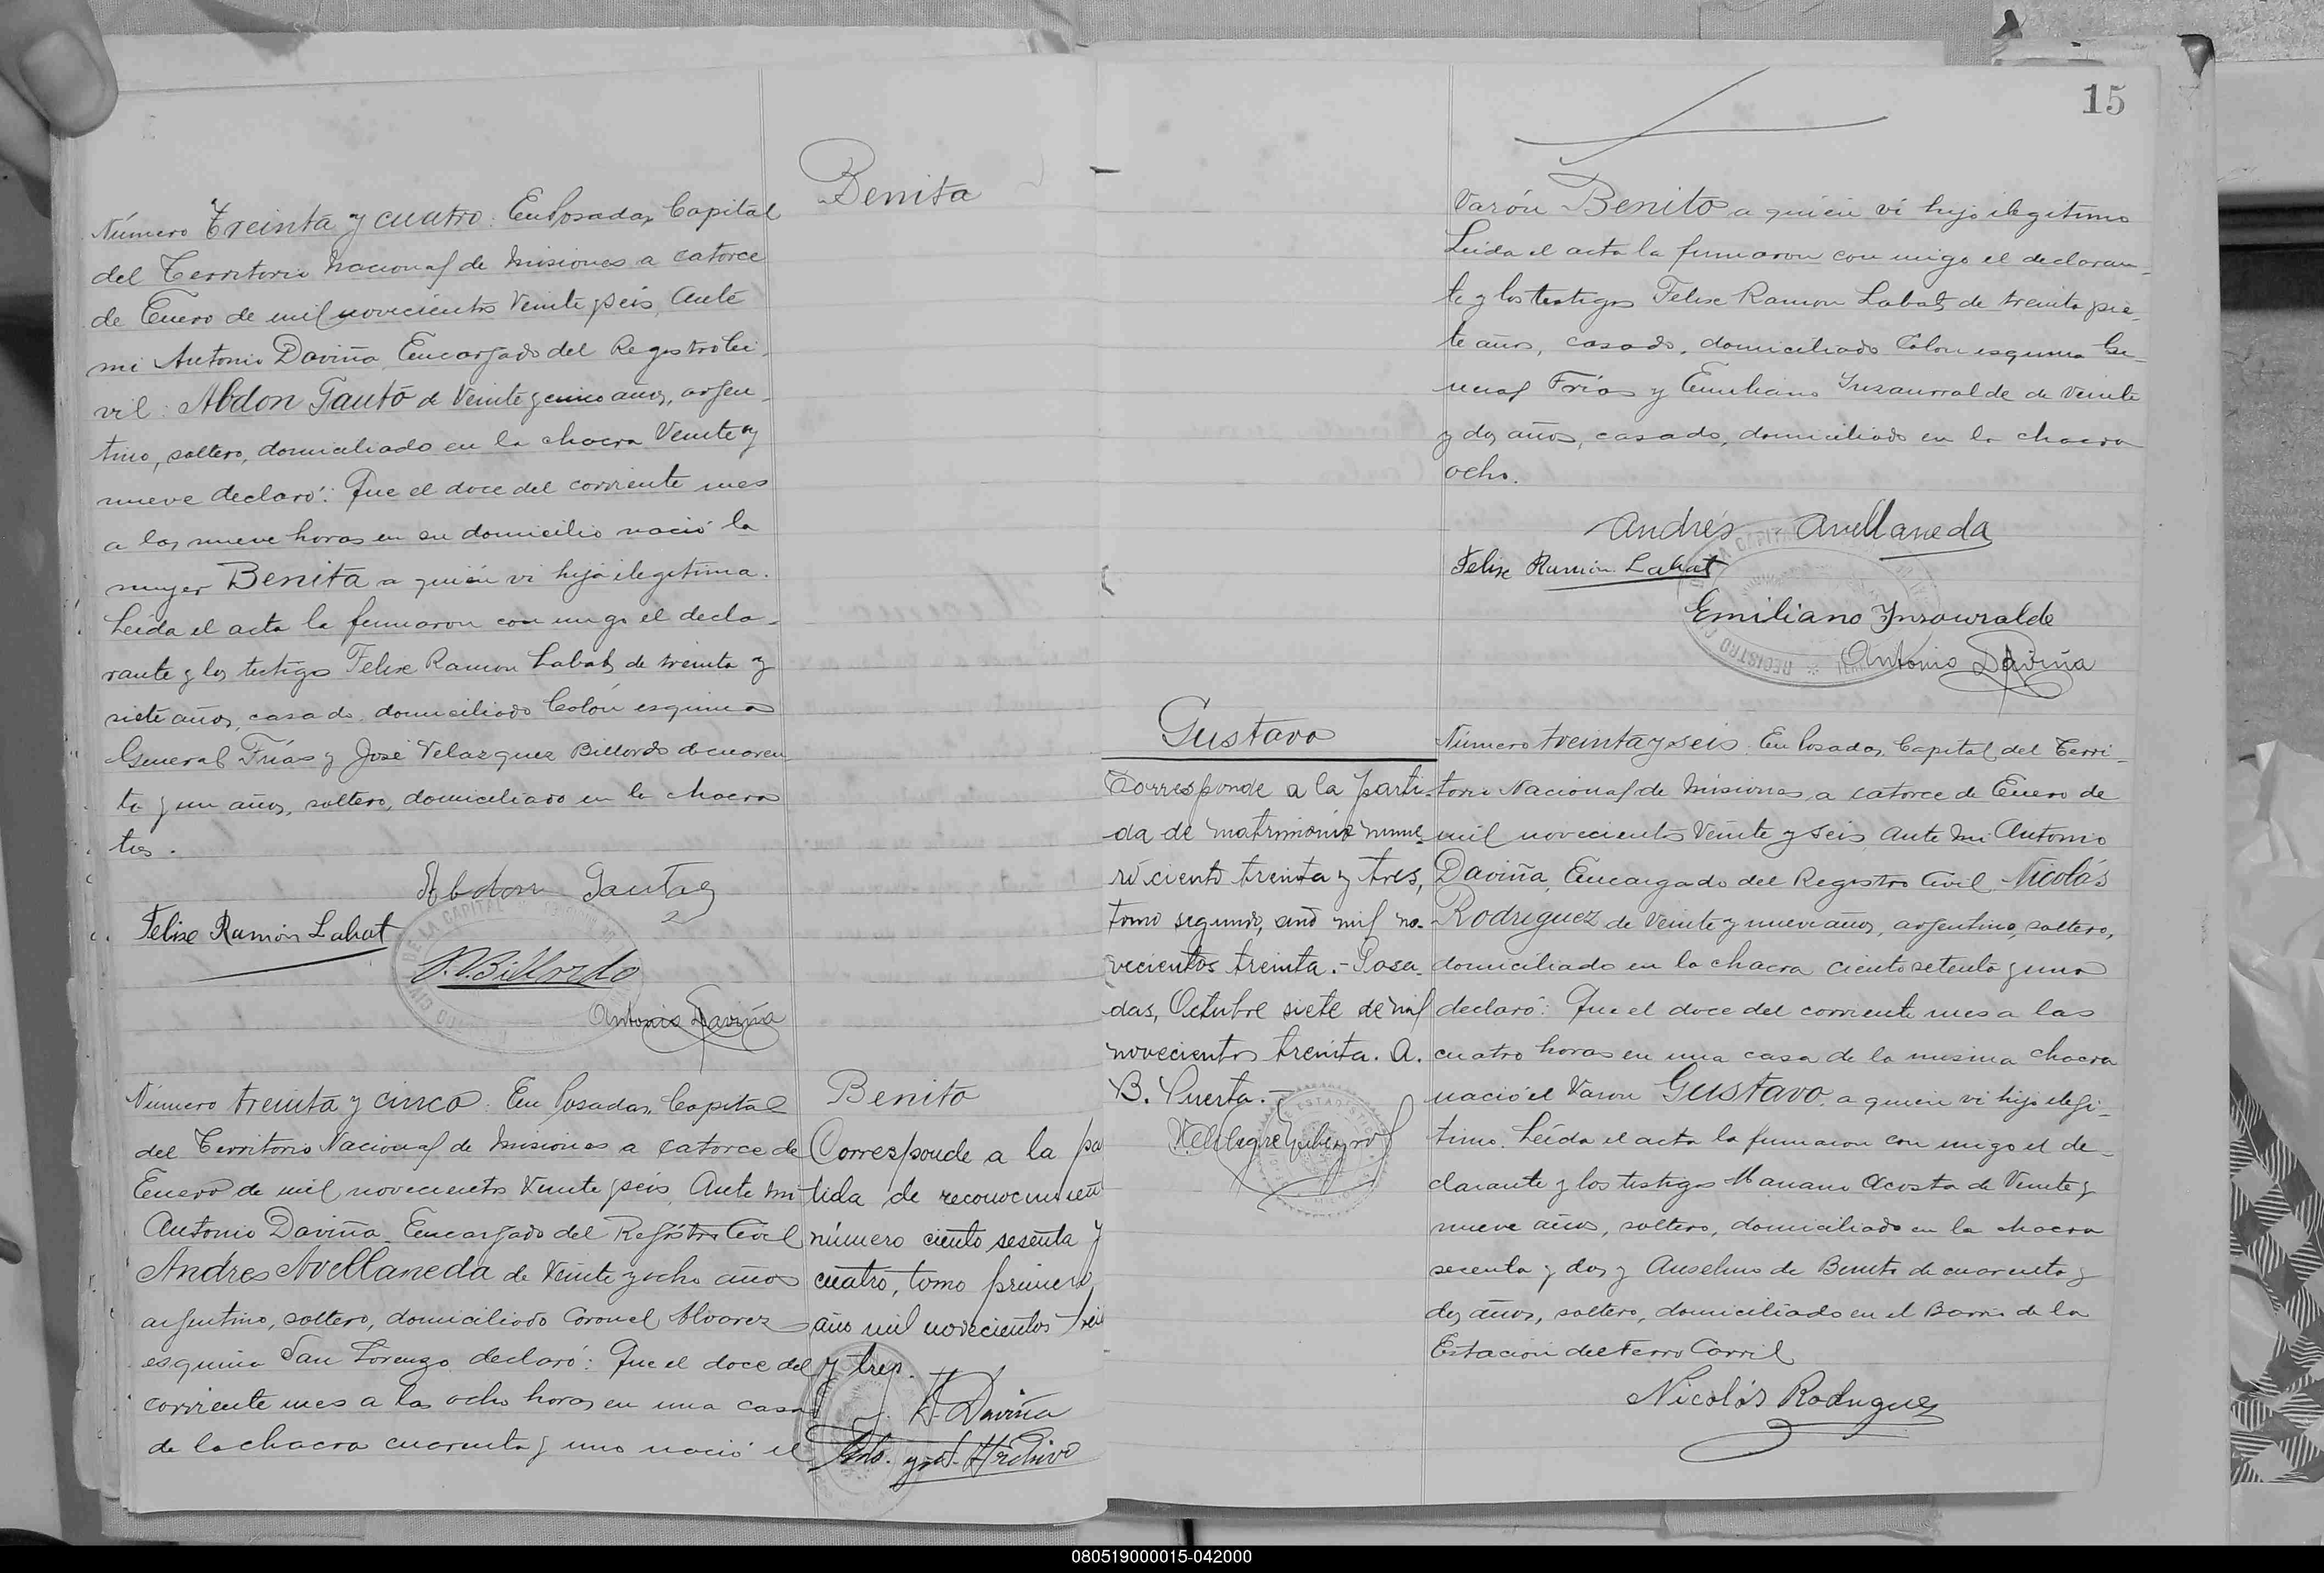 Benita
Número Treinta y cuatro: En Posadas, Capital
del Territorio Nacional de Misiones a catorce
de Enero de mil novecientos Veinte y seis, Ante
mi Antonio Daviña, Encargado del Registro Ci-
vil: Abdon Gauto de Veinte y cinco años, argen-
tino, soltero, domiciliado en la chacra Veinte y
nueve declaró: Que el doce del corriente mes
a las nueve horas en su domicilio nació la
mujer Benita a quién vi hija ilegitima.
Leida el acta la firmaron con migo el decla-
rante y los testigos Felix Ramon Labat, de treinta y
siete años, casado, domiciliado Colón esquina
General Frías y José Velazquez Billordo de cuaren-
ta y un años, soltero, domiciliado en la chacra
tres.
Abdon Gauto
Felix Ramón Labat
V. Billordo
Antonio Daviña
Benito
Número treinta y cinco: En Posadas, Capital
del Territorio Nacional de Misiones a catorce de
Enero de mil novecientos Veinte y seis, Ante mi
Antonio Daviña, Encargado del Registro Civil
Andres Avellaneda de Veinte y ocho años
argentino, soltero, domiciliado Coronel Alvarez
esquina San Lorenzo declaró: Que el doce del
corriente mes a las ocho horas en una casa
de la chacra cuarenta y uno nació el
Corresponde a la pa
tida de reconocimien
número ciento sesenta y
cuatro, tomo primero,
año mil novecientos trei
y tres.
A. Daviña
Archivo
15
Varón Benito a quién vi hijo ilegitimo
Leida el acta la firmaron con migo el declaran-
te y los testigos Felix Ramon Labat, de treinta y sie-
te años, casado, domiciliado Colon esquina Ge-
neral Frías y Emiliano Insaurralde de Veinte
y dos años, casado, domiciliado en la chacra
ocho.
Andrés Avellaneda
Felix Ramón Labat
Emiliano Insaurralde
Antonio Daviña
Gustavo
Corresponde a la parti-
da de matrimonio nume-
ro ciento treinta y tres,
tomo segundo, año mil no-
vecientos treinta.- Posa-
das, Octubre siete de mil
novecientos treinta. A.
B. Puerta.-
Número treinta y seis: En Posadas, Capital del Terri-
torio Nacional de Misiones, a catorce de Enero de
mil novecientos Veinte y seis, Ante mi Antonio
Daviña, Encargado del Registro Civil Nicolás
Rodriguez de Veinte y nueve años, argentino, soltero,
domiciliado en la chacra ciento setenta y una
declaró: Que el doce del corriente mes a las
cuatro horas en una casa de la misma chacra
nació el Varon Gustavo, a quien vi hijo ilegi-
timo. Leída el acta la firmaron con migo el de-
clarante y los testigos Mariano Acosta de Veinte y
nueve años, soltero, domiciliado en la chacra
sesenta y dos y Anselmo de Benito de cuarenta y
dos años, soltero, domiciliado en el Barrio de la
Estación del Ferro Carril
Nicolás Rodriguez
080519000015-042000